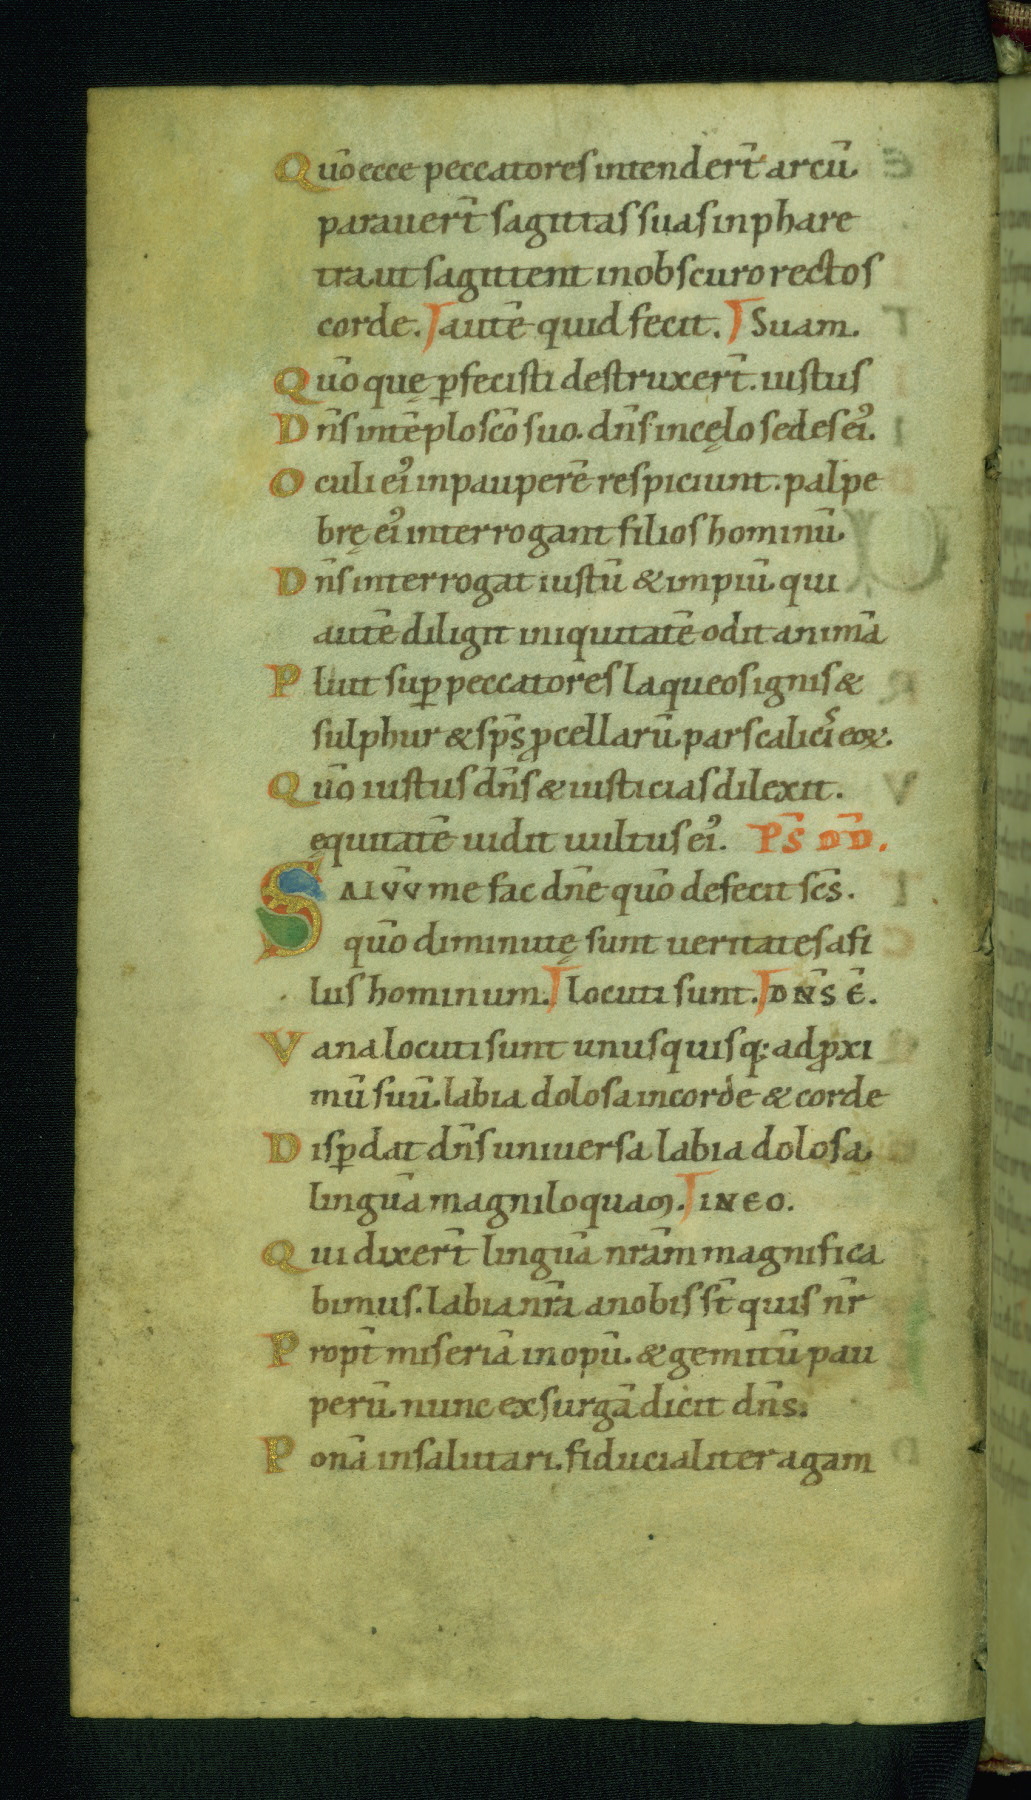 Quō ecce peccatores intender̄t arcū
parauer̄t sagittas suas in phare
tra ut sagittent in obscuro rectos
corde. autē quid fecit. Suam.
Quō quę ꝑfecisti destruxer̄t. iustus
Dn̄s in tēplo sc̄o suo. dn̄s in cęlo sedes eiꝰ.
Oculi eiꝰ in pauperē respiciunt. palpe
brę eiꝰ interrogant filios hominū
Dn̄s interrogat iustū & impiū qui
autē diligit iniquitatē odit animā
Pluit suꝑ peccatores laqueos ignis &
sulphur & sp̄s ꝓcellarū pars calicis eoꝝ.
Quō iustus dn̄s & iusticias dilexit.
ęquitatē uidit uultus eiꝰ. PS̄ DD̄.
SALVV̄ me fac dn̄e quō defecit sc̄s.
quō diminutę sunt ueritates a fi
lius hominum. locuti sunt. DN̄S Ē.
Vana locuti sunt unusquisq; ad ꝓxi
mū suū labia dolosa in corde & corde
Disꝑdat dn̄s uniuersa labia dolosa
linguā magniloquam. IN EO.
Qui dixer̄t linguā nr̄am magnifica
bimus. labia nr̄a a nobis st̄ quis nr̄
Propt̄ miseriā inopū. & gemitū pau
perū nunc exsurgā dicit dn̄s.
Ponā in salutari. fiducialiter agam